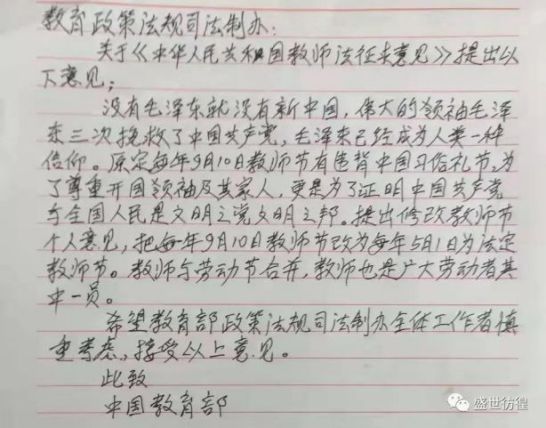 教育政策法规司法制办：
关于《中华人民共和国教师法征求意见》提出以
下意见；
没有毛泽东就没有新中国，伟大的领袖毛泽
东三次挽救了中国共产党，毛泽东已经成为人类一种
信仰。原定每年9月10日教师节有违背中国习俗礼节，为
了尊重开国领袖及其家人，更是为了证明中国共产党
与全国人民是文明之党文明之邦。提出修改教师节
个人意见，把每年9月10日教师节改为每年5月1日为法定
教师节。教师与劳动节合并，教师也是广大劳动者其
中一员。
希望教育部政策法规司法制办全体工作者慎
重考虑，接受以上意见。
此致
中国教育部
盛世彷徨